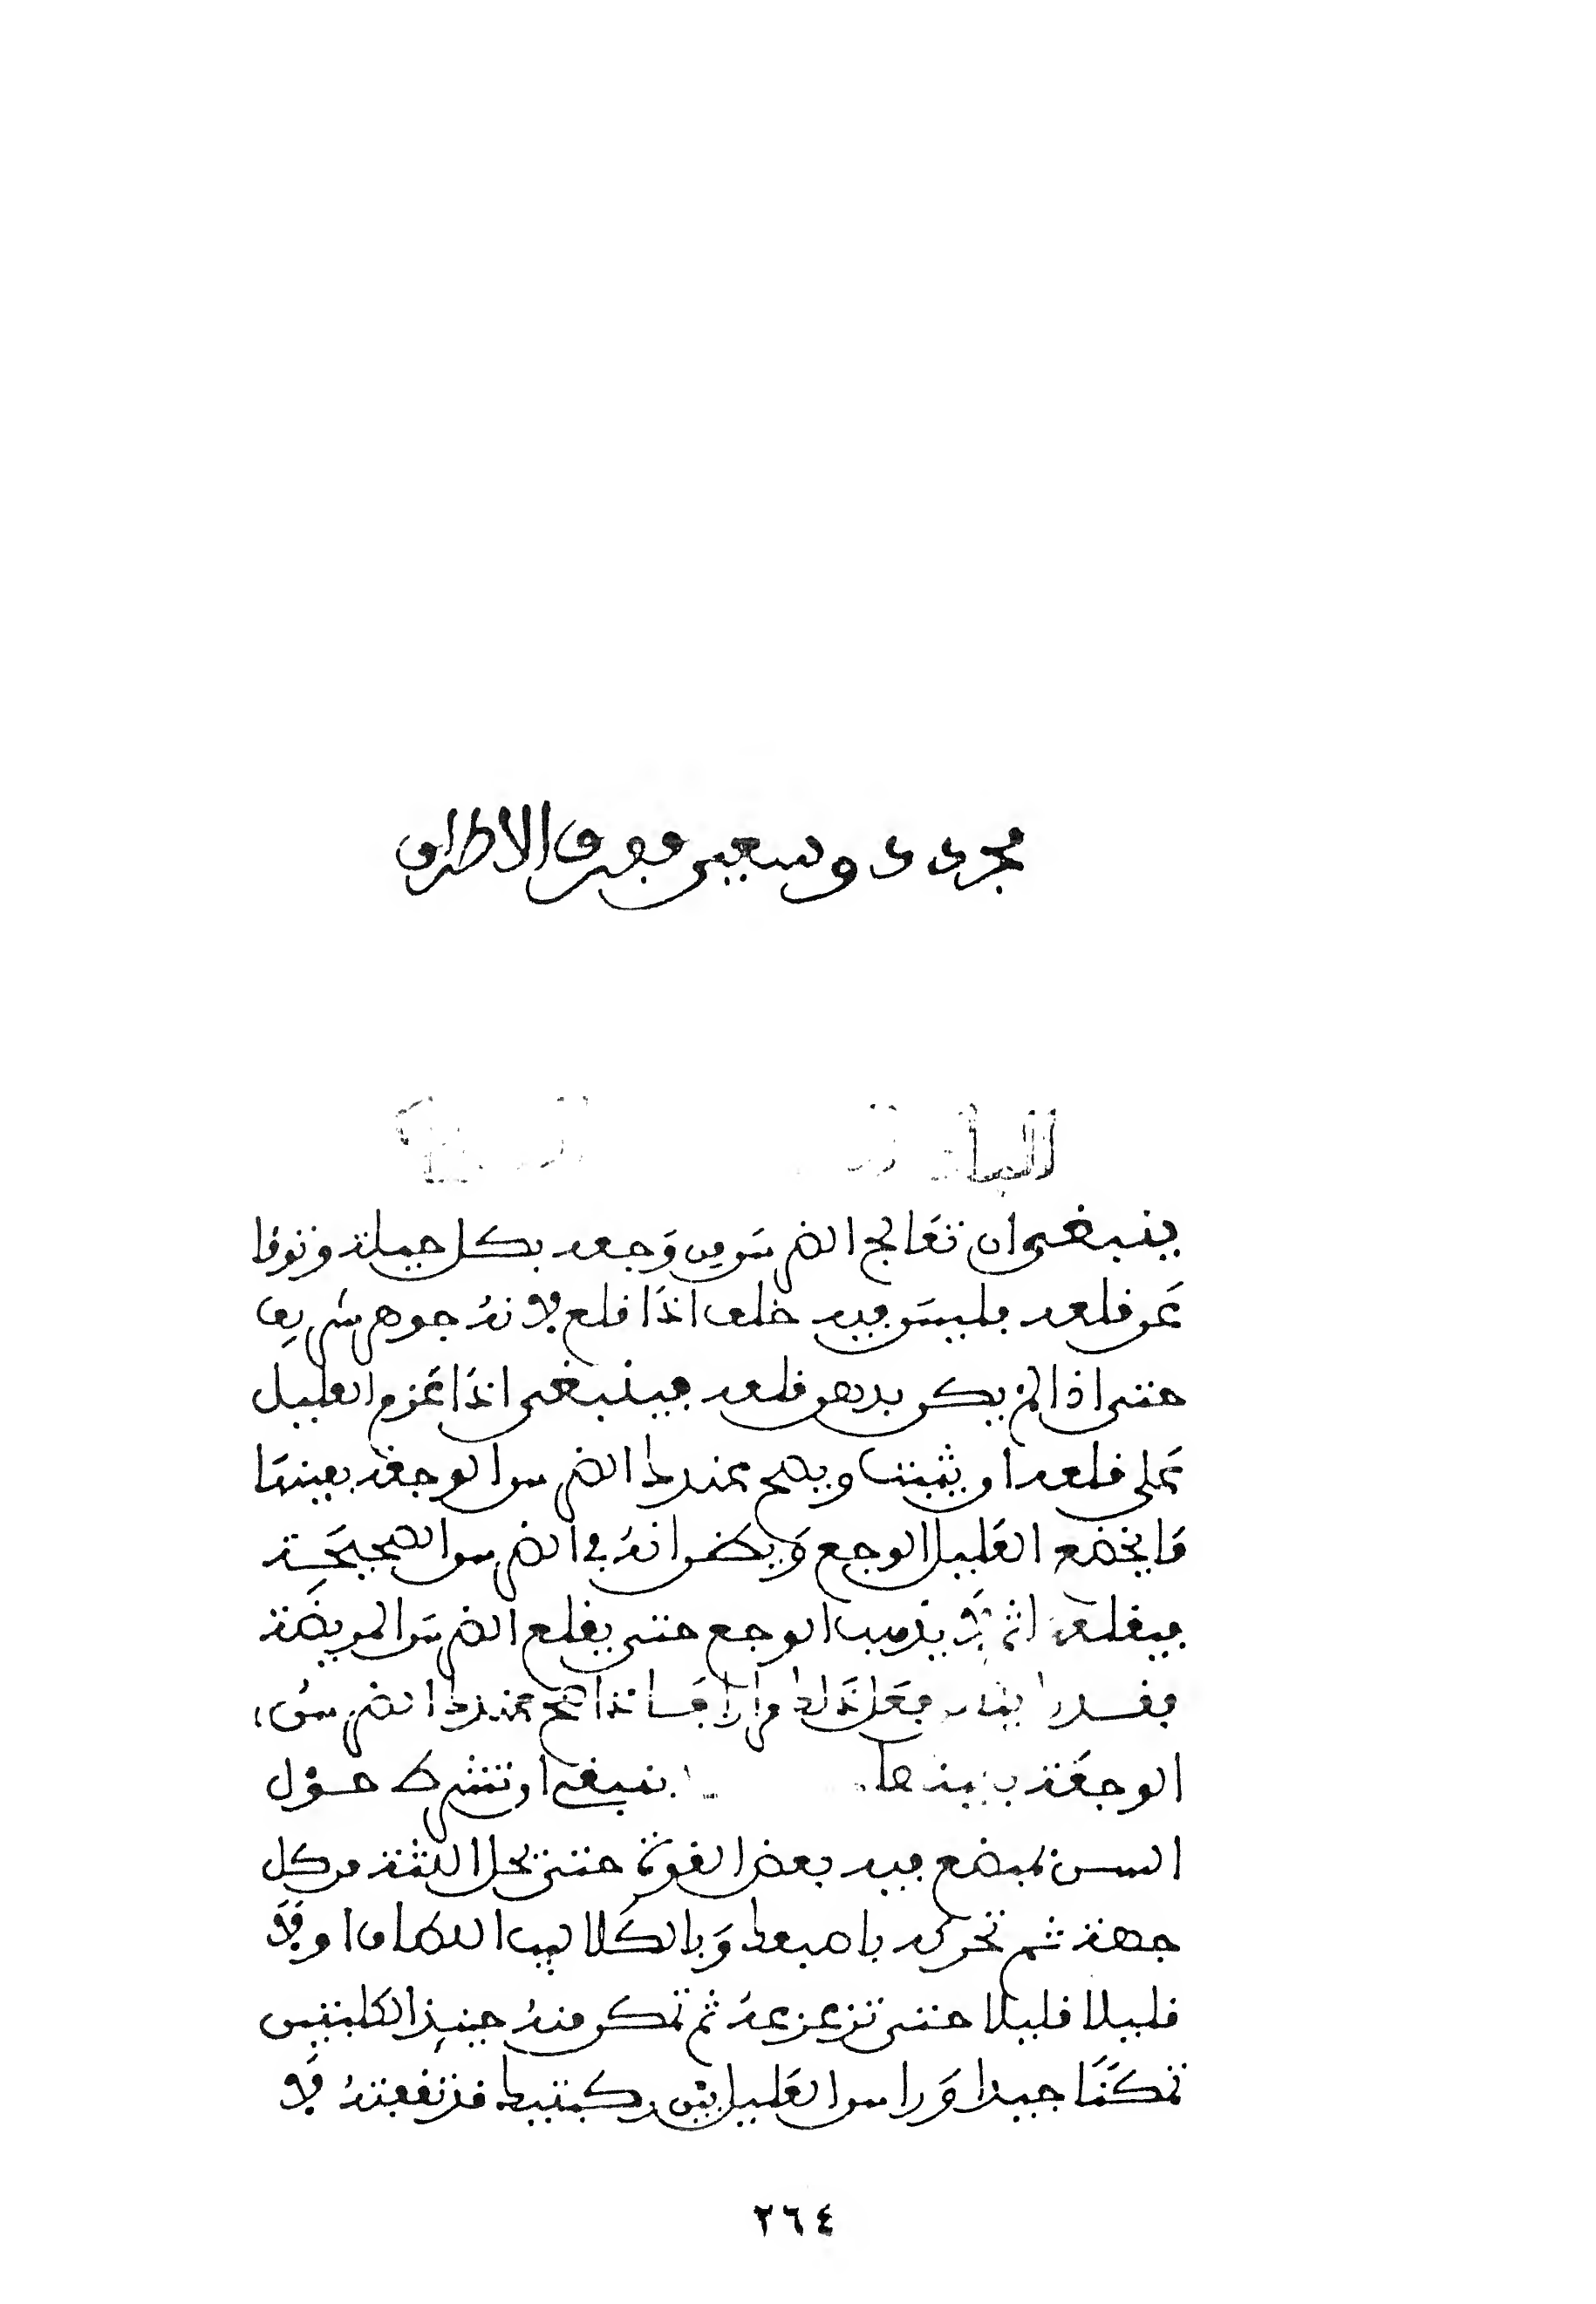 مجردى ى وسعيں مفرق الاطراف
الباب
ينبغى ان تعالج الضرس من وجعه بكل حيلة وتوقا
عن قلعه فليس فيه خلف اذا قلع لانه جوهر شريف
حتى اذا لم يكن بد من قلعه فينبغى اذا عزم العليل
على قلعه ان يثبت ويصح عندك الضرس الوجعة بعينها
ما يخدع العليل الوجع ويظن انه في الضرس الصحيحة
فيقلعه ثم لا يذهب الوجع حتى يقلع الضرس المريضة
فقد راينا فعل ذلك مرارا فاذا صح عندك الضرس
الوجعة بعينها ينبغى ان تشرط حول
السن بمبضع فيه بعض القوة حتى تحل اللثة من كل
جهة ثم تحركه باصبعك وبالكلاليب اللطاف اولا
قليلا قليلا حتى تزعزعه ثم تمكن منه حينئذ الكلبتين
تمكنا جيدا وراس العليل بين ركبتيك قد ثقفته لا
٢٦٤